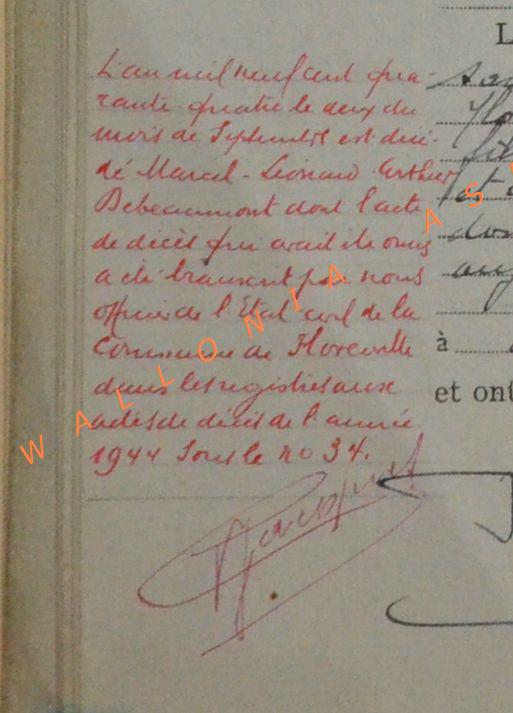 L'an mil neuf cent qua-
rante quatre le deux du
mois de Septembre est décé-
dé Marcel-Léonard Arthur
Debeaumont dont l'acte
de décès qui avait été omis
a été transcrit par nous
officier de l'Etat civil de la
Commune de Floreville
dans les registres aux
actes de décès de l'année
1944 sous le no 34.
L
à
et ont
WALLONIA AS